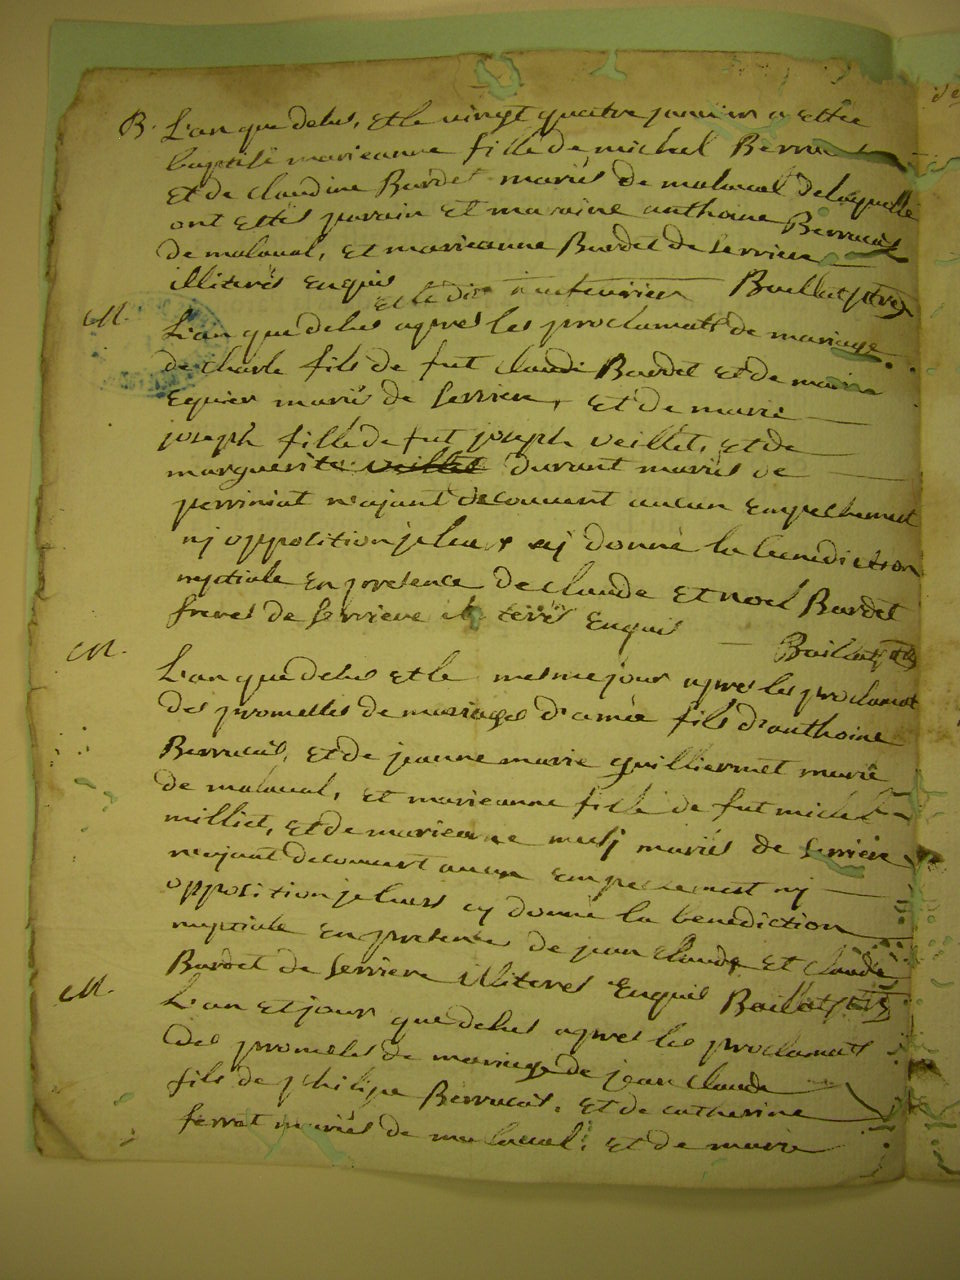 B. L'an que desus, et le vingt quatre janvier a estée
baptisé marieanne fille de michel Berrucat
et de claudine Bardet mariés de malaval delaquelle
ont estés parain et maraine anthoine Berrucat
de malaval, et marieanne Bardet de serriere
illiterés enquis Baillat ptre
et le dix
M. L'an que desus apres les proclamatt de mariage
de charle fils de fut claude Bardet et de marie
mariés de serriere, et de marie
joseph fille de fut joseph veillet, et de
marguerite veillet durant mariés de
perriniat n'ajant decouvert aucun empechement
nj opposition je leur ej donné la benediction
nuptiale en presence de claude et noel Bardet
freres de serriere illiterés enquis Baillat ptre
M. L'an que desus et le mesme jour apres les proclamat
des promesses de mariages d'amée fils d'anthoine
Berrucat, et de jeanne marie guilliermet marié
de malaval, et marieanne fille de fut michel
milliet, et de marieanne mariés de serriere
n'ajant decouvert aucun empechement nj
opposition je leurs ej donné la benediction
nuptiale en presence de jean claude et claude
Bardet de serriere illiteres enquis Baillat ptre
M. L'an et jour que desus apres les proclamatt
des promesses de mariage de jean claude
fils de philipe Berrucat, et de catherine
ferrat mariés de malaval, et de marie